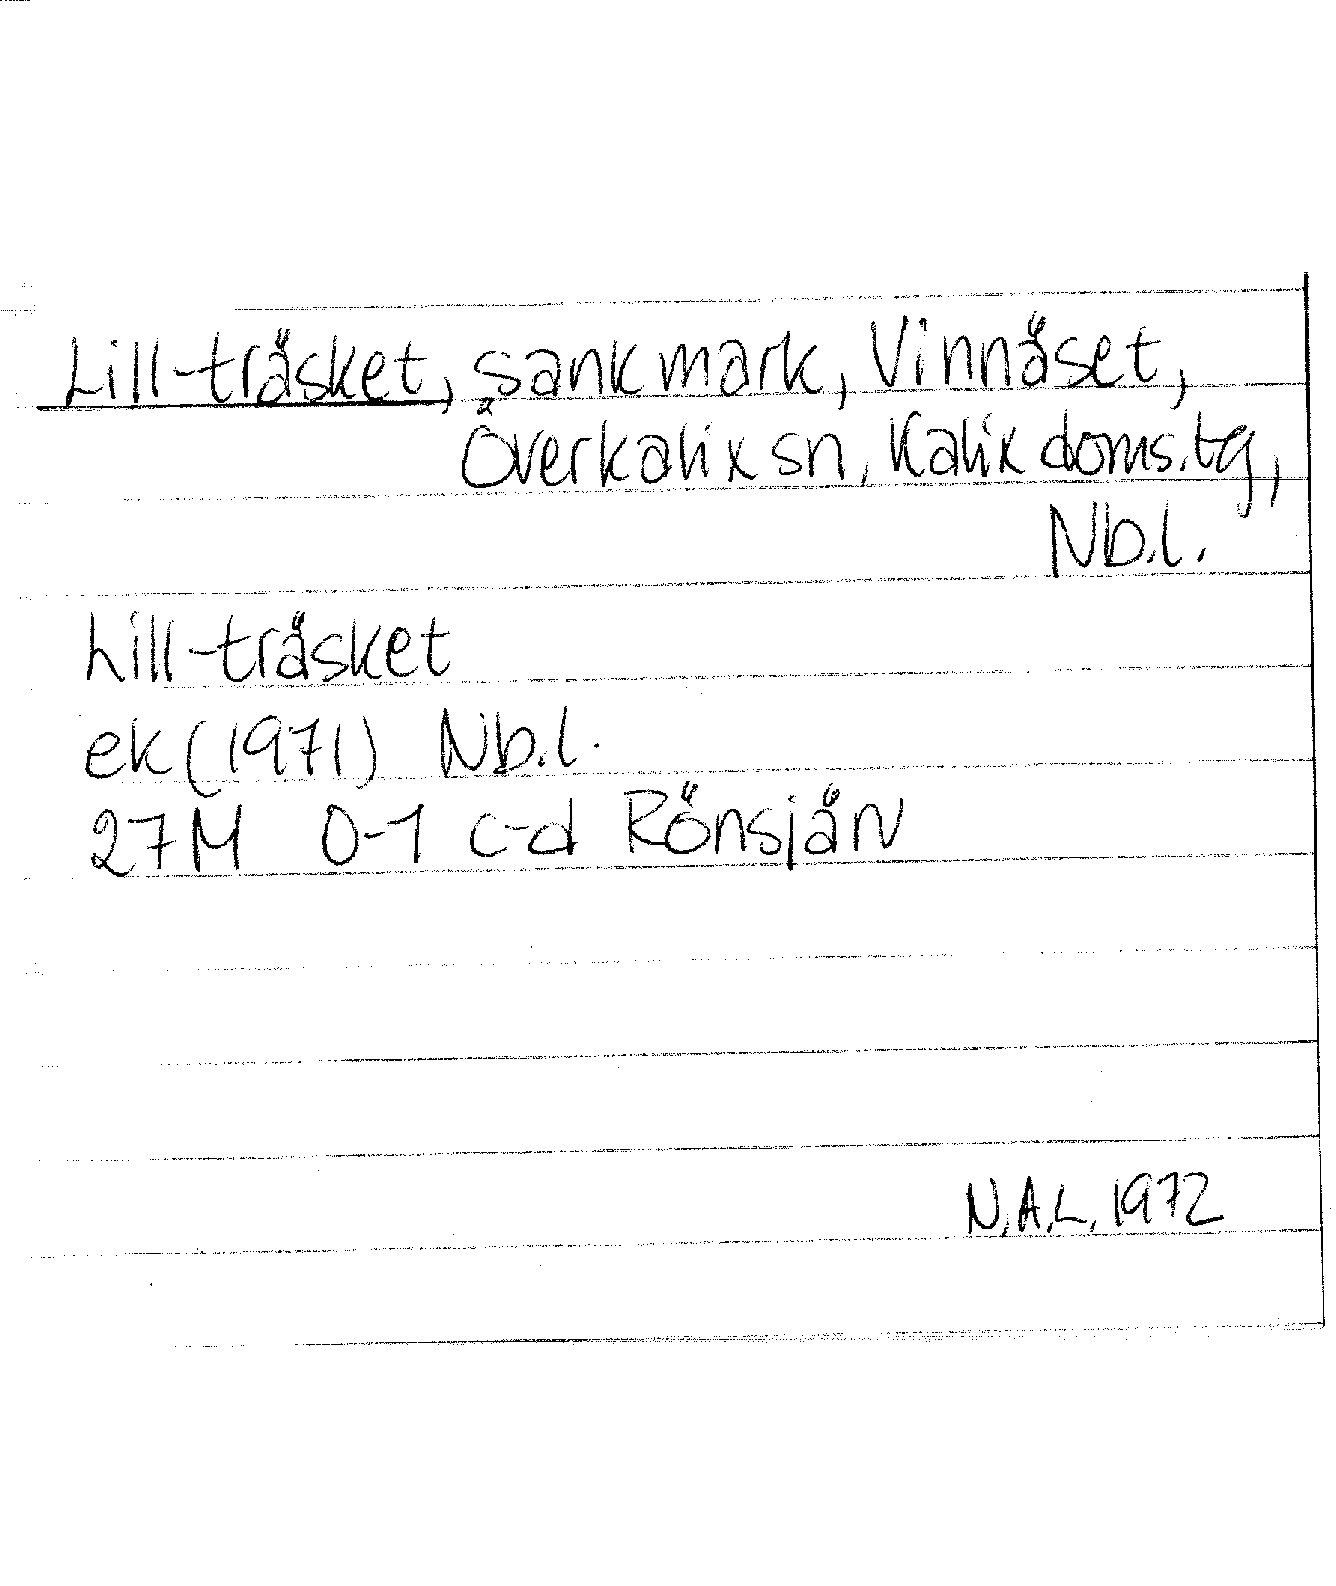 Lill-träsket, sank mark, Vinnäset,
Överkalix sn, Kalix doms.tg,
Nb.l.
Lill-träsket
ek (1971) Nb.l.
27M 0-1 c-d Rönsjärv
N.A.L. 1972